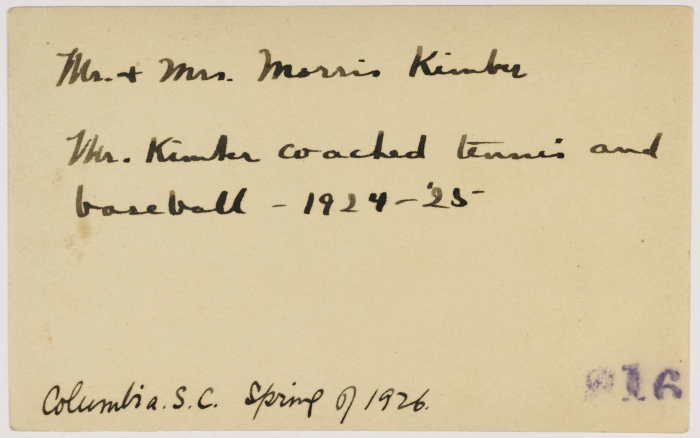 Mr. + Mrs. Morris Kimber
Mr. Kimber coached tennis and
baseball - 1924-'25
Columbia. S.C. Spring of 1926.
16